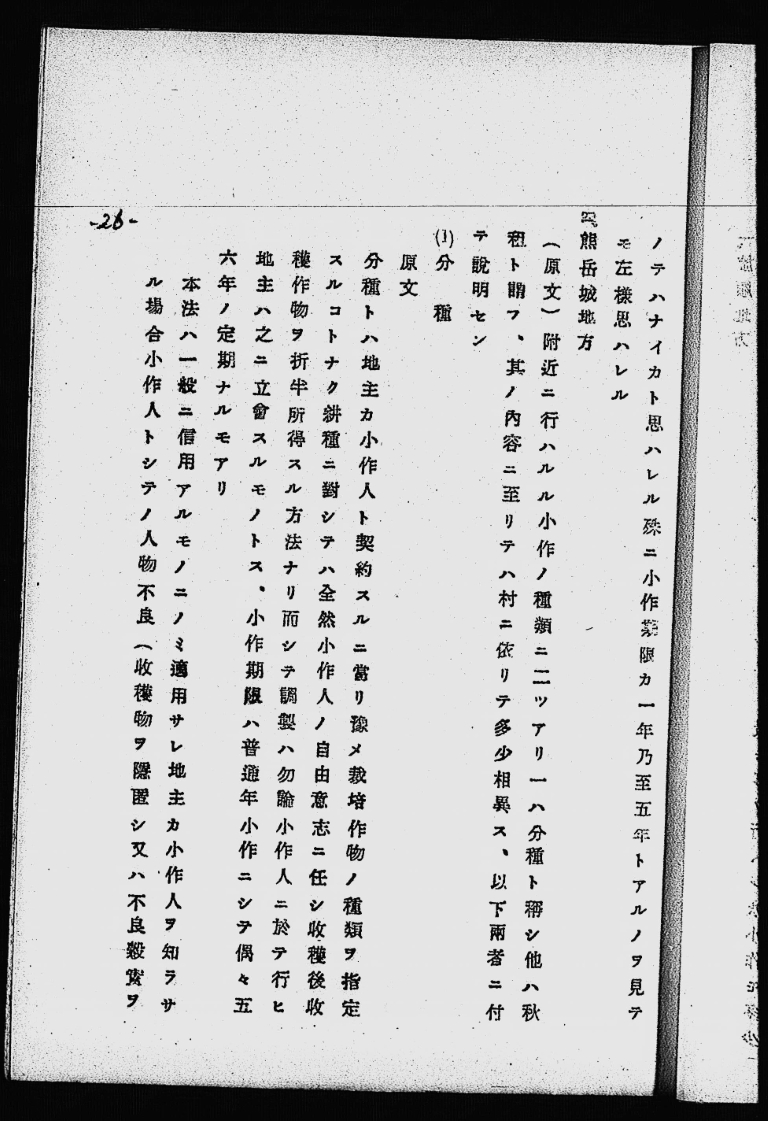 ノテハナイカト思ハレル殊ニ小作期限カ一年乃至五年トアルノヲ見テ
モ左樣思ハレル
四、熊岳城地方
(原文)附近ニ行ハルル小作ノ種類ニ二ツアリ一ハ分種ト稱シ他ハ秋
租ト謂フ、其ノ內容ニ至リテハ村ニ依リテ多少相異ス、以下兩者ニ付
テ說明セン
(1)分種
原文
分種トハ地主カ小作人ト契約スルニ當リ豫メ栽培作物ノ種類ヲ指定
スルコトナク耕種ニ對シテハ全然小作人ノ自由意志ニ任シ收穫後收
穫作物ヲ折半所得スル方法ナリ而シテ調製ハ勿論小作人ニ於テ行ヒ
地主ハ之ニ立會スルモノトス、小作期限ハ普通年小作ニシテ偶々五
六年ノ定期ナルモアリ
本法ハ一般ニ信用アルモノニノミ適用サレ地主カ小作人ヲ知ラサ
ル場合小作人トシテノ人物不良(收穫物ヲ隱匿シ又ハ不良穀實ヲ
-26-